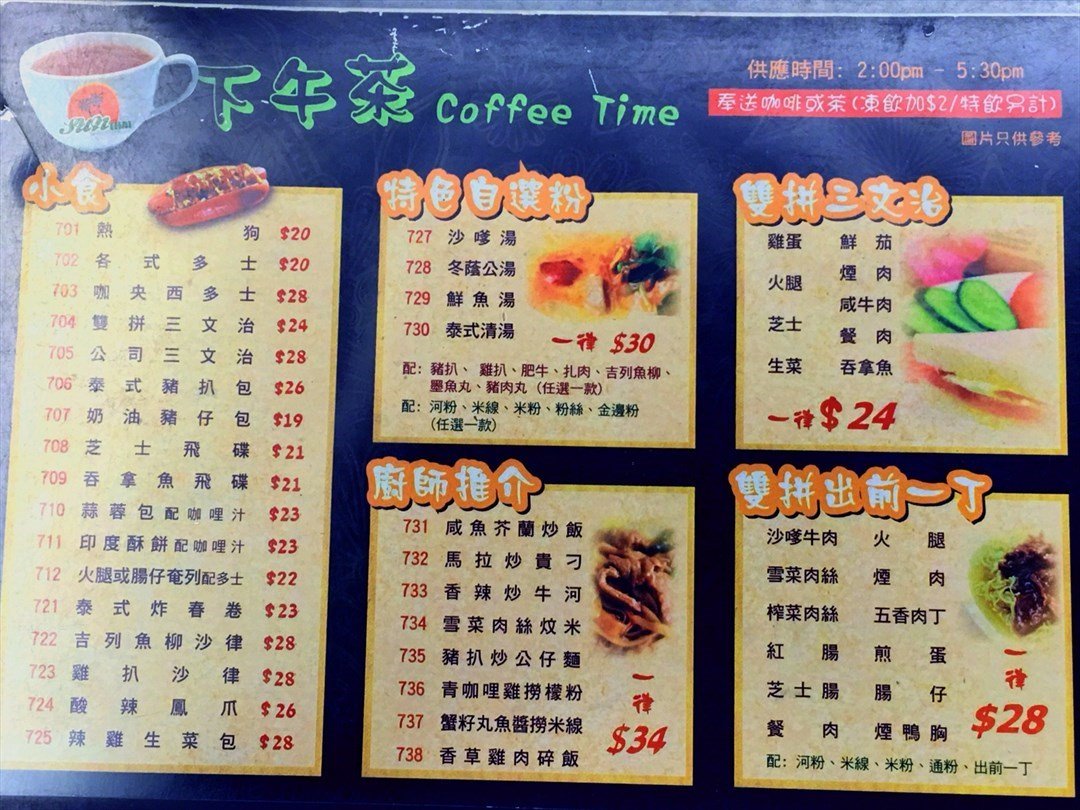 下午茶 Coffee Time
供應時間: 2:00pm - 5:30pm
奉送咖啡或茶(凍飲加$2/特飲另計)
圖片只供參考
小食
701 熱狗 $20
702 各式多士 $20
703 咖央西多士 $28
704 雙拼三文治 $24
705 公司三文治 $28
706 泰式豬扒包 $26
707 奶油豬仔包 $19
708 芝士飛碟 $21
709 吞拿魚飛碟 $21
710 蒜蓉包配咖哩汁 $23
711 印度酥餅配咖哩汁 $23
712 火腿或腸仔奄列配多士 $22
721 泰式炸春卷 $23
722 吉列魚柳沙律 $28
723 雞扒沙律 $28
724 酸辣鳳爪 $26
725 辣雞生菜包 $28
特色自選粉
727 沙嗲湯
728 冬蔭公湯
729 鮮魚湯
730 泰式清湯
一律 $30
配: 豬扒、雞扒、肥牛、扎肉、吉列魚柳、
墨魚丸、豬肉丸 (任選一款)
配: 河粉、米線、米粉、粉絲、金邊粉
(任選一款)
廚師推介
731 咸魚芥蘭炒飯
732 馬拉炒貴刁
733 香辣炒牛河
734 雪菜肉絲炆米
735 豬扒炒公仔麵
736 青咖哩雞撈檬粉
737 蟹籽丸魚醬撈米線
738 香草雞肉碎飯
一律
$34
雙拼三文治
雞蛋 鮮茄
火腿 煙肉
咸牛肉
芝士 餐肉
生菜 吞拿魚
一律 $24
雙拼出前一丁
沙嗲牛肉 火腿
雪菜肉絲 煙肉
榨菜肉絲 五香肉丁
紅腸 煎蛋
芝士腸 腸仔
餐肉 煙鴨胸
一律
$28
配: 河粉、米線、米粉、通粉、出前一丁